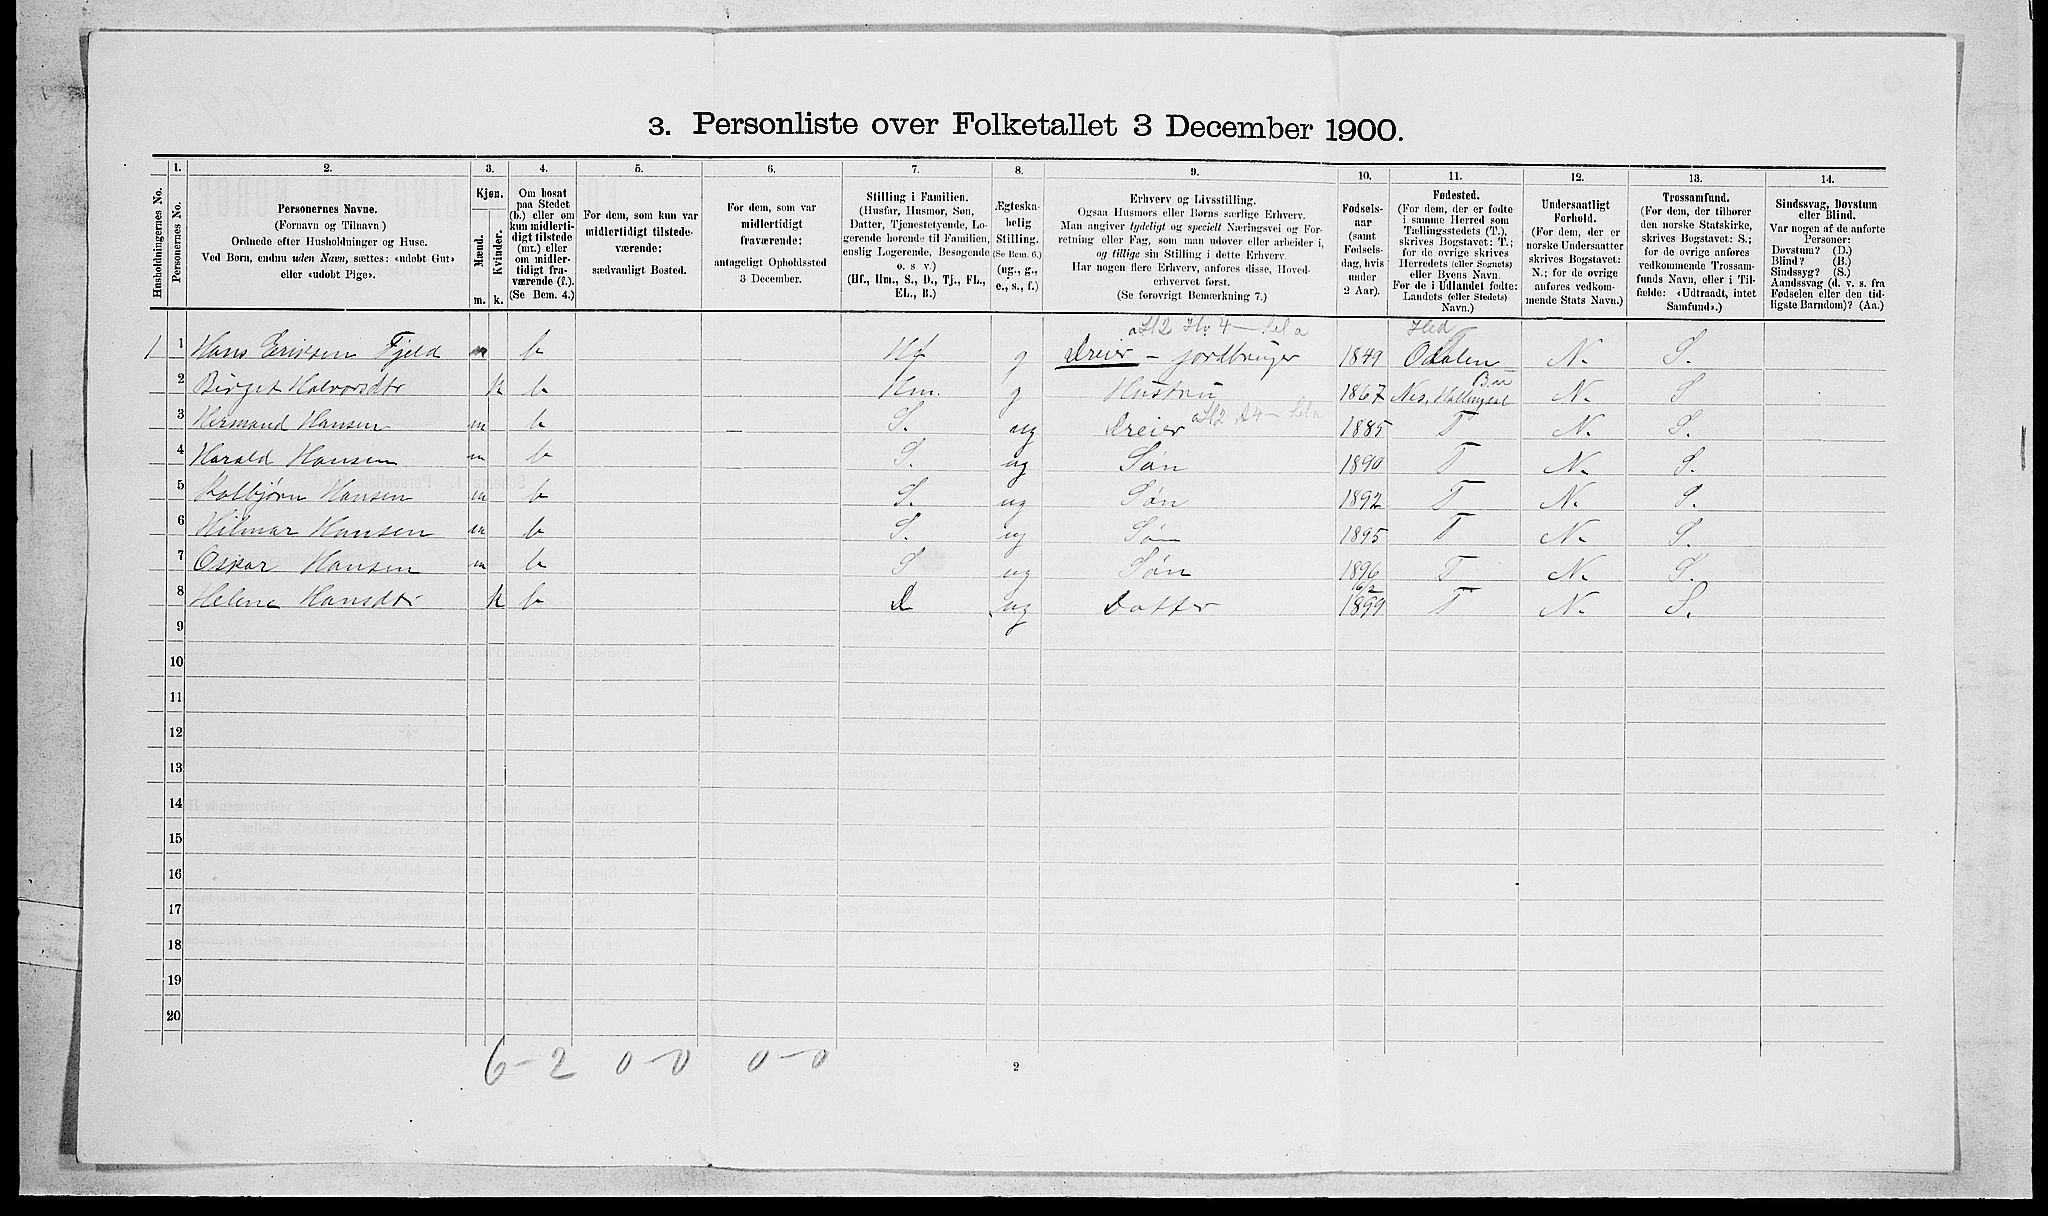 3. Personliste over Folketallet 3 December 1900.
Husholdningernes No.
1.
Personernes No.
2.
Personernes Navne.
(Fornavn og Tilnavn)
Ordnede efter Husholdninger og Huse.
Ved Børn, endnu uden Navn, sættes: «udøbt Gut»
eller «udøbt Pige».
3.
Kjøn.
Mænd.
Kvinder.
m. k.
4.
Om bosat
paa Stedet
(b.) eller om
kun midlerti-
digt tilstede
(mt.) eller
om midler-
tidigt fra-
værende (f.).
(Se Bem. 4.)
5.
For dem, som kun var
midlertidigt tilstede-
værende:
sædvanligt Bosted.
6.
For dem, som var
midlertidigt
fraværende:
antageligt Opholdssted
3 December.
7.
Stilling i Familien.
(Husfar, Husmor, Søn,
Datter, Tjenestetyende, Lo-
gerende hørende til Familien,
enslig Logerende, Besøgende
o. s v.)
(Hf., Hm., S., D., Tj., FL.,
EL., B.)
8.
Ægteska-
belig
Stilling.
(Se Bem. 6.)
(ug., g.,
e., s., f.)
9.
Erhverv og Livsstilling.
Ogsaa Husmors eller Børns særlige Erhverv.
Man angiver tydeligt og specielt Næringsvei og For-
retning eller Fag, som man udøver eller arbeider i,
og tillige sin Stilling i dette Erhverv.
Har nogen flere Erhverv, anføres disse, Hoved-
erhvervet først.
(Se forøvrigt Bemærkning 7.)
10.
Fødsels-
aar
(samt
Fødsels-
dag, hvis
under
2 Aar).
11.
Fødested.
(For dem, der er fødte
i samme Herred som
Tællingsstedets (T.),
skrives Bogstavet: T.;
for de øvrige skrives
Herredets (eller Sognets)
eller Byens Navn.
For de i Udlandet fødte:
Landets (eller Stedets)
Navn.)
12.
Undersaatligt
Forhold.
(For dem, der er
norske Undersaatter
skrives Bogstavet:
N.; for de øvrige
anføres vedkom-
mende Stats Navn.)
13.
Trossamfund.
(For dem, der tilhører
den norske Statskirke,
skrives Bogstavet: S.;
for de øvrige anføres
vedkommende Trossam-
funds Navn, eller i Til-
fælde: «Udtraadt, intet
Samfund».)
14.
Sindssvag, Døvstum
eller Blind.
Var nogen af de anførte
Personer:
Døvstum? (D.)
Blind? (B.)
Sindssyg? (S.)
Aandssvag (d. v. s. fra
Fødselen eller den tid-
ligste Barndom)? (Aa.)
Hed
1 1 Hans Eriksen Fjeld m b Hf g Dreier – jordbruger 1849 Odalen N. S.
2 Birget Halvorsdtr k b Hm. g Hustru 1867 Nes, Hallingdal N. S
3 Hermand Hansen m b S. ug Dreier 1885 T N. S.
4 Harald Hansen m b S. ug Søn 1890 T N. S.
5 Kolbjørn Hansen m b S. ug Søn 1892 T N. S.
6 Hilmar Hansen m b S. ug Søn 1895 T N. S.
7 Oskar Hansen m b S ug Søn 1896 T N. S.
8 Helene Hansdtr k b D ug Datter 16/2 1899 T N. S.
9
10
11
12
13
14
15
16
17
18
19
20
6–2 0–0 0–0
2